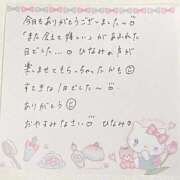 今日もありがとうございました〜
「また会えて嬉しい」があふれた
日でした… ひなみの方が
楽ませてもらっちゃったかも
すてきな1日でした〜
ありがとう
おやすみなさい ひなみ